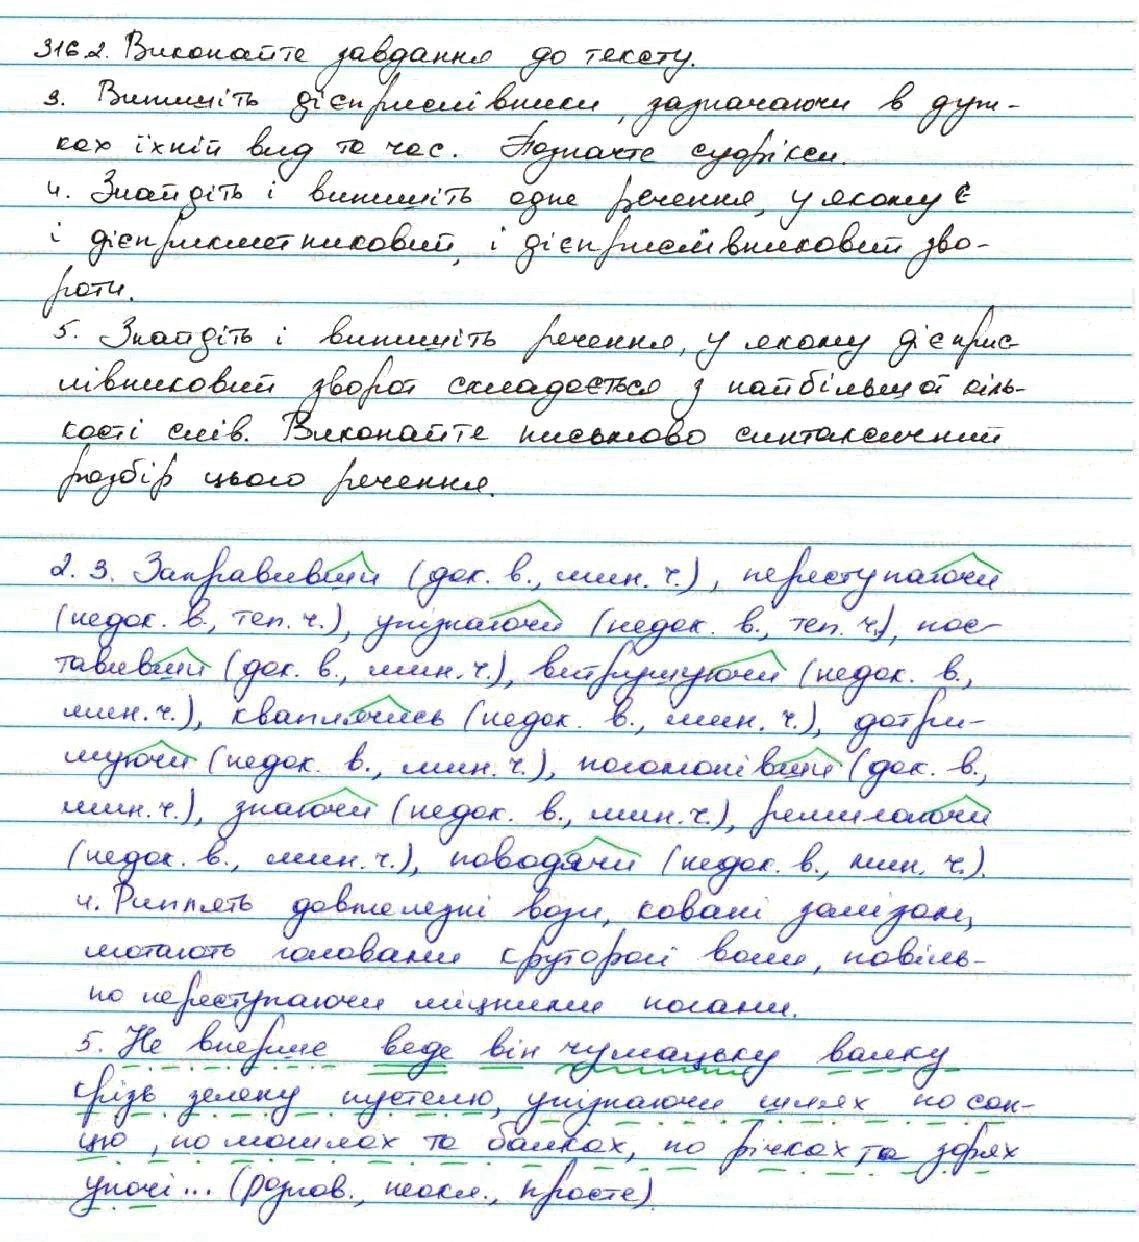 316.2. Виконайте завдання до тексту.
3. Випишіть дієприслівники, зазначаючи в дуж-
ках їхній вид та час. Позначте суфікси.
4. Знайдіть і випишіть одне речення, у якому є
і дієприкметниковий, і дієприслівниковий зво-
роти.
5. Знайдіть і випишіть речення, у якому дієприс-
лівниковий зворот складається з найбільшої кіль-
кості слів. Виконайте письмово синтаксичний
розбір цього речення.
2. 3. Заправивши (док. в., мин. ч.), переступаючи
(недок. в., теп. ч.), упізнаючи (недок. в., теп. ч.), пос-
тавивши (док. в., мин. ч.), витрушуючи (недок. в.,
мин. ч.), кваплячись (недок. в., мин. ч.), дотри-
муючи (недок. в., мин. ч.), погомонівши (док. в.,
мин. ч.), знаючи (недок. в., мин. ч.), ремигаючи
(недок. в., мин. ч.), поводячи (недок. в., мин. ч.).
4. Риплять довжелезні вози, ковані залізом,
мотають головами круторогі воли, повіль-
но переступаючи міцними ногами.
5. Не вперше веде він чумацьку валку
крізь зелену пустелю, упізнаючи шлях по сон-
цю, по могилах та балках, по річках та зорях
уночі... (розпов., неокл., просте)